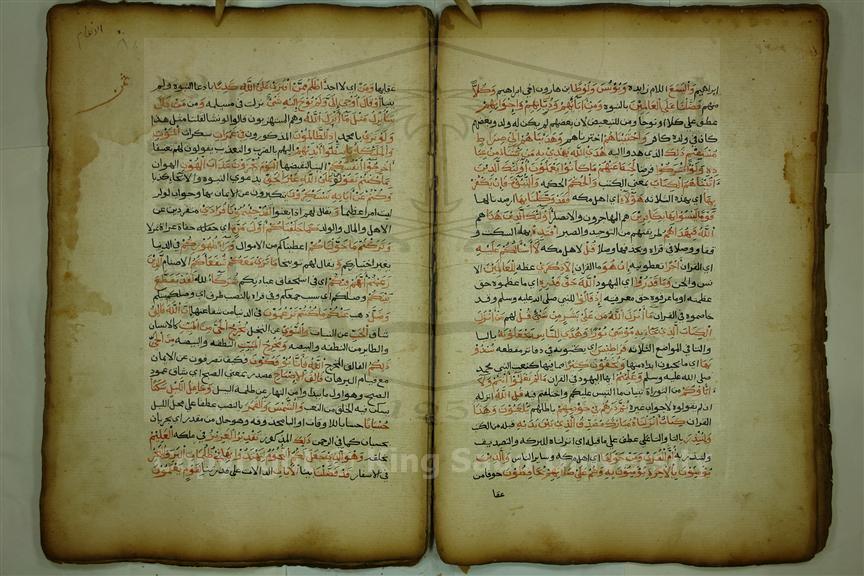 ابراهيم وَالْيَسَعَ اللام زايدة وَيُونُسَ وَلُوطًا بن هاران اخي ابراهيم وَكُلًّا
منهم فَضَّلْنَا عَلَى الْعَالَمِينَ بالنبوة وَمِنْ آبَائِهِمْ وَذُرِّيَّاتِهِمْ وَإِخْوَانِهِمْ
عطف على كلا او نوحا ومن للتبعيض لان بعضهم لم يكن له ولد وبعضهم
كان في ولده كافر وَاجْتَبَيْنَاهُمْ اخترناهم وَهَدَيْنَاهُمْ إِلَى صِرَاطٍ
مُسْتَقِيمٍ ذَلِكَ الذي هدوا اليه هُدَى اللَّهِ يَهْدِي بِهِ مَنْ يَشَاءُ مِنْ عِبَا
دِهِ وَلَوْ أَشْرَكُوا فرضا لَحَبِطَ عَنْهُمْ مَا كَانُوا يَعْمَلُونَ أُولَئِكَ الَّذِينَ
آتَيْنَاهُمُ الْكِتَابَ بمعنى الكتب وَالْحُكْمَ الحكمة وَالنُّبُوَّةَ فَإِنْ يَكْفُرْ
بِهَا اي بهذه الثلاثة هَؤُلَاءِ اي اهل مكه فَقَدْ وَكَّلْنَا بِهَا ارصدنا لها
قَوْمًا لَيْسُوا بِهَا بِكَافِرِينَ هم المهاجرون والانصار أُولَئِكَ الَّذِينَ هَدَا هم
اللَّهُ فَبِهُدَاهُمُ طريقتهم من التوحيد والصبر اقْتَدِهْ بهاء السكت و
قفا ووصلا في قراءه وبحذفها وصلا قُلْ لاهل مكه لَا أَسْأَلُكُمْ عَلَيْهِ
اي القران أَجْرًا تعطونيه إِنْ هُوَ ما القران إِلَّا ذِكْرَى عظة لِلْعَالَمِينَ الا
نس والجن وَمَا قَدَرُوا اي اليهود اللَّهَ حَقَّ قَدْرِهِ اي ما عظموه حق
عظمته او ما عرفوه حق معرفته إِذْ قَالُوا للنبي صلى الله عليه وسلم وقد
خاصموه في القران مَا أَنْزَلَ اللَّهُ عَلَى بَشَرٍ مِنْ شَيْءٍ قُلْ لهم مَنْ أَنْزَلَ
الْكِتَابَ الَّذِي جَاءَ بِهِ مُوسَى نُورًا وَهُدًى لِلنَّاسِ يَجْعَلُونَهُ باليا
والتا في المواضع الثلاثه قَرَاطِيسَ اي يكتبونه في دفاتر مقطعه يُبْدُو
نَهَا اي ما يحبون ابداءه منها وَيُخْفُونَ كَثِيرًا مما فيها كنعت النبي محمد
صلى الله عليه وسلم وَعُلِّمْتُمْ ايها اليهود في القران مَا لَمْ تَعْلَمُوا أَنْتُمْ وَلَا
آبَاؤُكُمْ من التوراة ببيان ما التبس عليكم واختلفتم فيه قُلِ اللَّهُ انزله
ان لم يقولوه لا جواب غيره ثُمَّ ذَرْهُمْ فِي خَوْضِهِمْ باطلهم يَلْعَبُونَ وَهَذَا
القران كِتَابٌ أَنْزَلْنَاهُ مُبَارَكٌ مُصَدِّقُ الَّذِي بَيْنَ يَدَيْهِ قبله من الكتب
وَلِتُنْذِرَ بالتا واليا عطف على معنى ما قبله اي انزلناه للبركه والتصديق
ولتنذر به أُمَّ الْقُرَى وَمَنْ حَوْلَهَا اي اهل مكه وساير الناس وَالَّذِينَ
يُؤْمِنُونَ بِالْآخِرَةِ يُؤْمِنُونَ بِهِ وَهُمْ عَلَى صَلَاتِهِمْ يُحَافِظُونَ خوفا من
عقا
الانعام
ثمن
عقابها وَمَنْ اي لا احد أَظْلَمُ مِمَّنِ افْتَرَى عَلَى اللَّهِ كَذِبًا بادعا النبوه ولم
ينبا أَوْ قَالَ أُوحِيَ إِلَيَّ وَلَمْ يُوحَ إِلَيْهِ شَيْءٌ نزلت في مسيلمه وَمن مَنْ قَالَ
سَأُنْزِلُ مِثْلَ مَا أَنْزَلَ اللَّهُ وهم المستهزؤن قالوا لو نشا لقلنا مثل هذا
وَلَوْ تَرَى يا محمد إِذِ الظَّالِمُونَ المذكورون فِي غَمَرَاتِ سكرات الْمَوْتِ
وَالْمَلَائِكَةُ بَاسِطُوا أَيْدِيهِمْ اليهم بالضرب والتعذيب يقولون لهم تعنيفا
أَخْرِجُوا أَنْفُسَكُمُ الينا لنقبضها الْيَوْمَ تُجْزَوْنَ عَذَابَ الْهُونِ الهوان
بِمَا كُنْتُمْ تَقُولُونَ عَلَى اللَّهِ غَيْرَ الْحَقِّ بدعوى النبوه والايحا كذبا
وَكُنْتُمْ عَنْ آيَاتِهِ تَسْتَكْبِرُونَ تتكبرون عن الايمان بها وجواب لو لر
ايت امرا عظيما وَ يقال لهم اذا بعثوا لَقَدْ جِئْتُمُونَا فُرَادَى منفردين عن
الاهل والمال والولد كَمَا خَلَقْنَاكُمْ أَوَّلَ مَرَّةٍ اي حفاة عراة غرلا
وَتَرَكْتُمْ مَا خَوَّلْنَاكُمْ اعطيناكم من الاموال وَرَاءَ ظُهُورِكُمْ في الدنيا
بغير اختياركم وَ يقال لهم توبيخا مَا نَرَى مَعَكُمْ شُفَعَاءَكُمُ الاصنام الَّذِينَ
زَعَمْتُمْ أَنَّهُمْ فِيكُمْ اي في استحقاق عبادتكم شُرَكَاءُ لله لَقَدْ تَقَطَّعَ
بَيْنَكُمْ وصلكم اي تشتت جمعكم وفي قراءه بالنصب ظرف اي وصلكم بينكم
وَضَلَّ ذهب عَنْكُمْ مَا كُنْتُمْ تَزْعُمُونَ في الدنيا من شفاعتها إِنَّ اللَّهَ فَالِقُ
شاق الْحَبِّ عن النبات وَالنَّوَى عن النخل يُخْرِجُ الْحَيَّ مِنَ الْمَيِّتِ كالانسان
والطاير من النطفه والبيضه وَمُخْرِجُ الْمَيِّتِ النطفه والبيضه مِنَ الْحَيِّ
ذَلِكُمُ الفالق المخرج اللَّهُ فَأَنَّى تُؤْفَكُونَ فكيف تصرفون عن الايمان
مع قيام البرهان فَالِقُ الْإِصْبَاحِ مصدر بمعنى الصبح اي شاق عمود
الصبح وهو اول ما يبدو من نور النهار عن ظلمة الليل وَجَاعِلُ اللَّيْلِ سَكَنًا
يسكن فيه الخلق من التعب وَالشَّمْسَ وَالْقَمَرَ بالنصب عطفا على محل الليل
حُسْبَانًا حسابا للاوقات او البا محذوفه وهو حال من مقدر اي يجريان
بحسبان كما في الرحمن ذَلِكَ المذكور تَقْدِيرُ الْعَزِيزِ في ملكه الْعَلِيمِ
بخلقه وَهُوَ الَّذِي جَعَلَ لَكُمُ النُّجُومَ لِتَهْتَدُوا بِهَا فِي ظُلُمَاتِ الْبَرِّ وَالْبَحْرِ
في الاسفار قَدْ فَصَّلْنَا بينا الْآيَاتِ الدالات على قدرتنا لِقَوْمٍ يَعْلَمُونَ